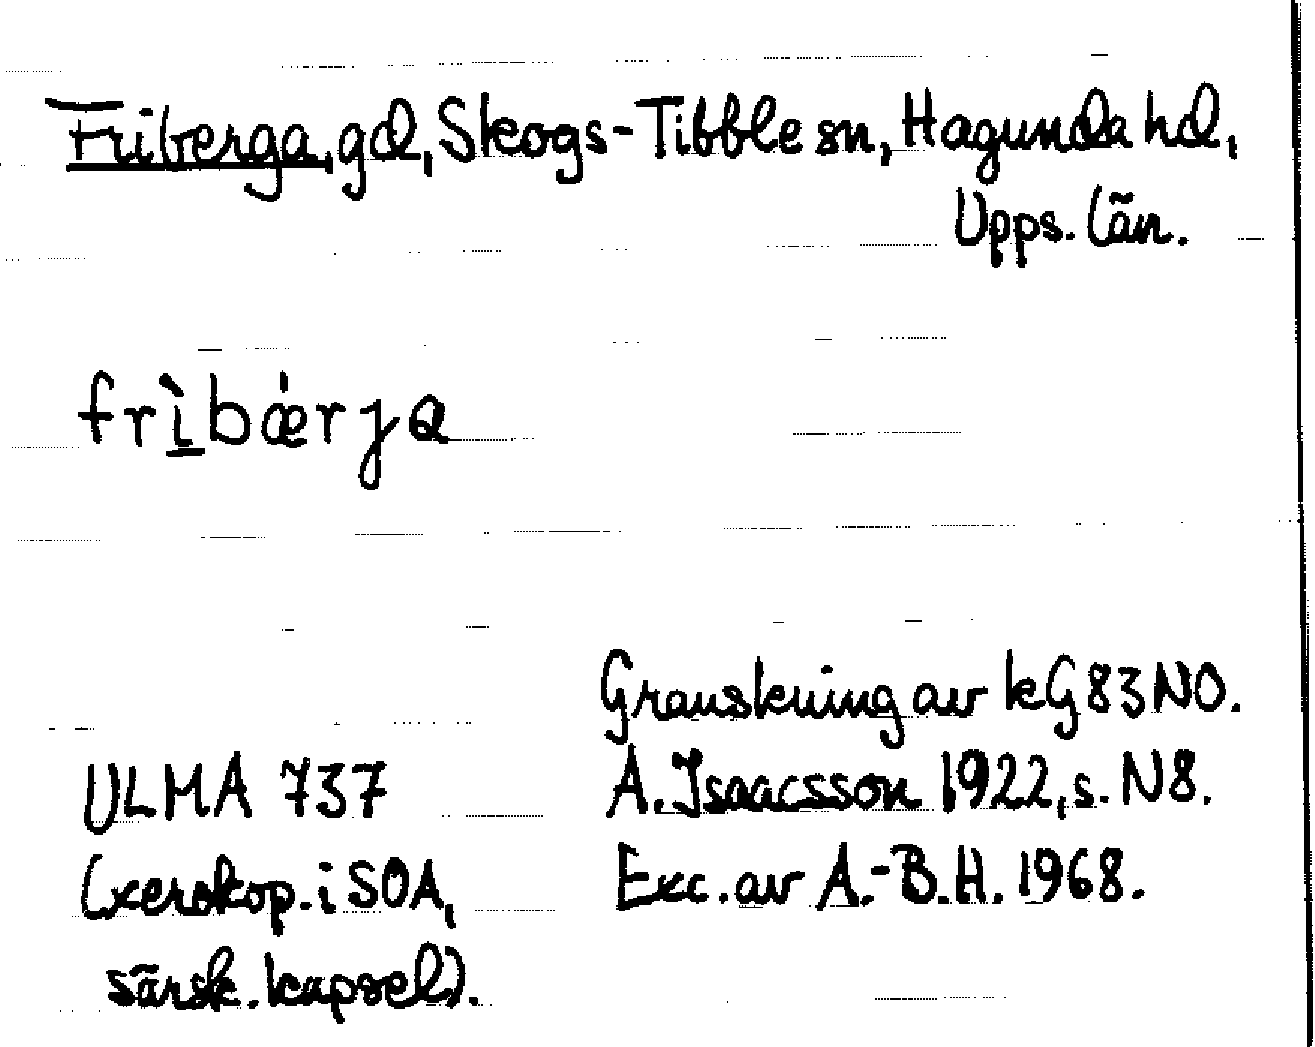 Friberga, gd, Skogs-Tibble sn, Hagunda hd,
Upps. län.
frìbǽrja
Granskning av kG83NO.
ULMA 737
A. Isaacsson 1922, s. N8.
(xerokop. i SOA,
Exc. av A.-B.H. 1968.
särsk. kapsel).